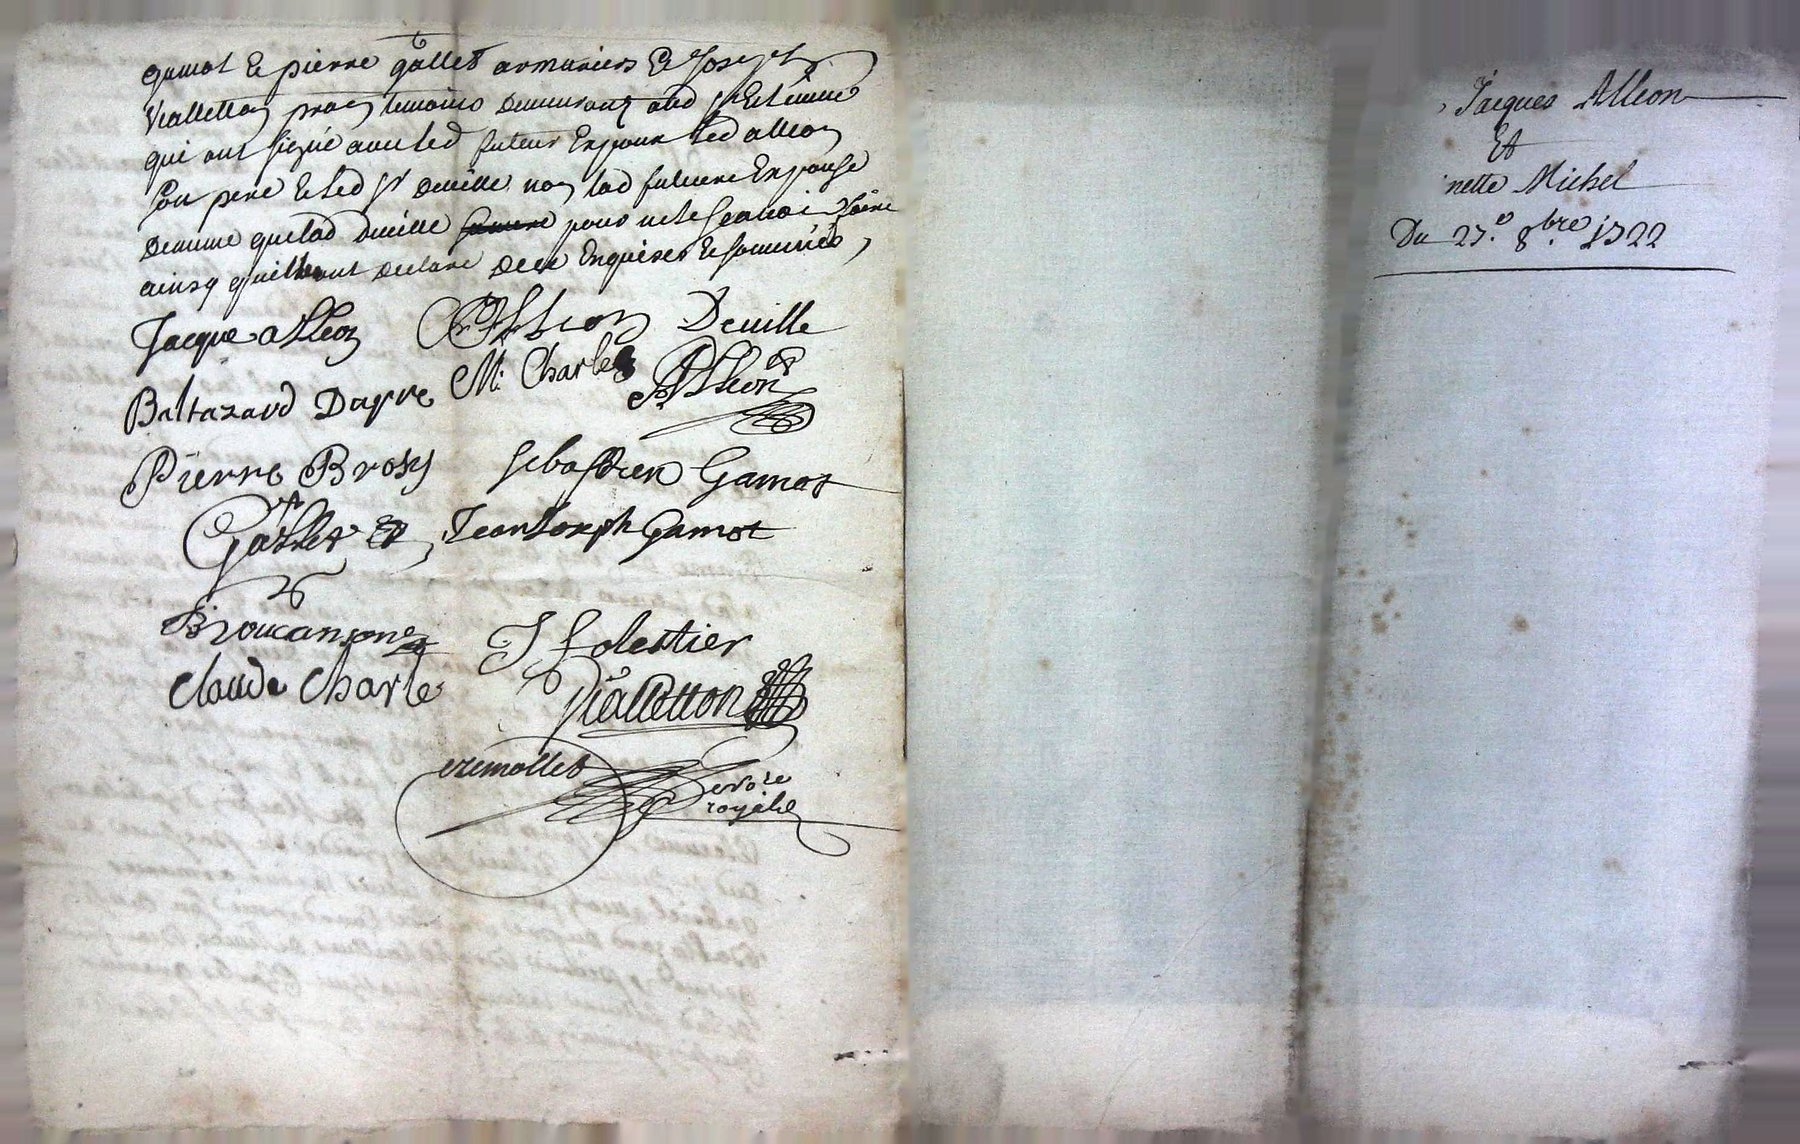 gamot & pierre gallet armuriers & Joseph
Vialletton pratn temoins demeurant aud St Estienne
qui ont signé avec led futeur Expoux led alleon
son pere & led Sr deville non lad future Expouse
demeume que lad deville pour ne le scavoir faire
ainsy quilles ont declare de ce Enquises & sommées,
Jacque alleon Alleon Deville
Baltazard Dayre M. Charles Alleon
Pierre Brosy sebastien Gamot
Gallet Jean Joseph Gamot
claude Charle J folestier
Vialletton
ezemallet
royale
Jacques Alleon
Et
nette Michel
Du 27.e 8bre 1722